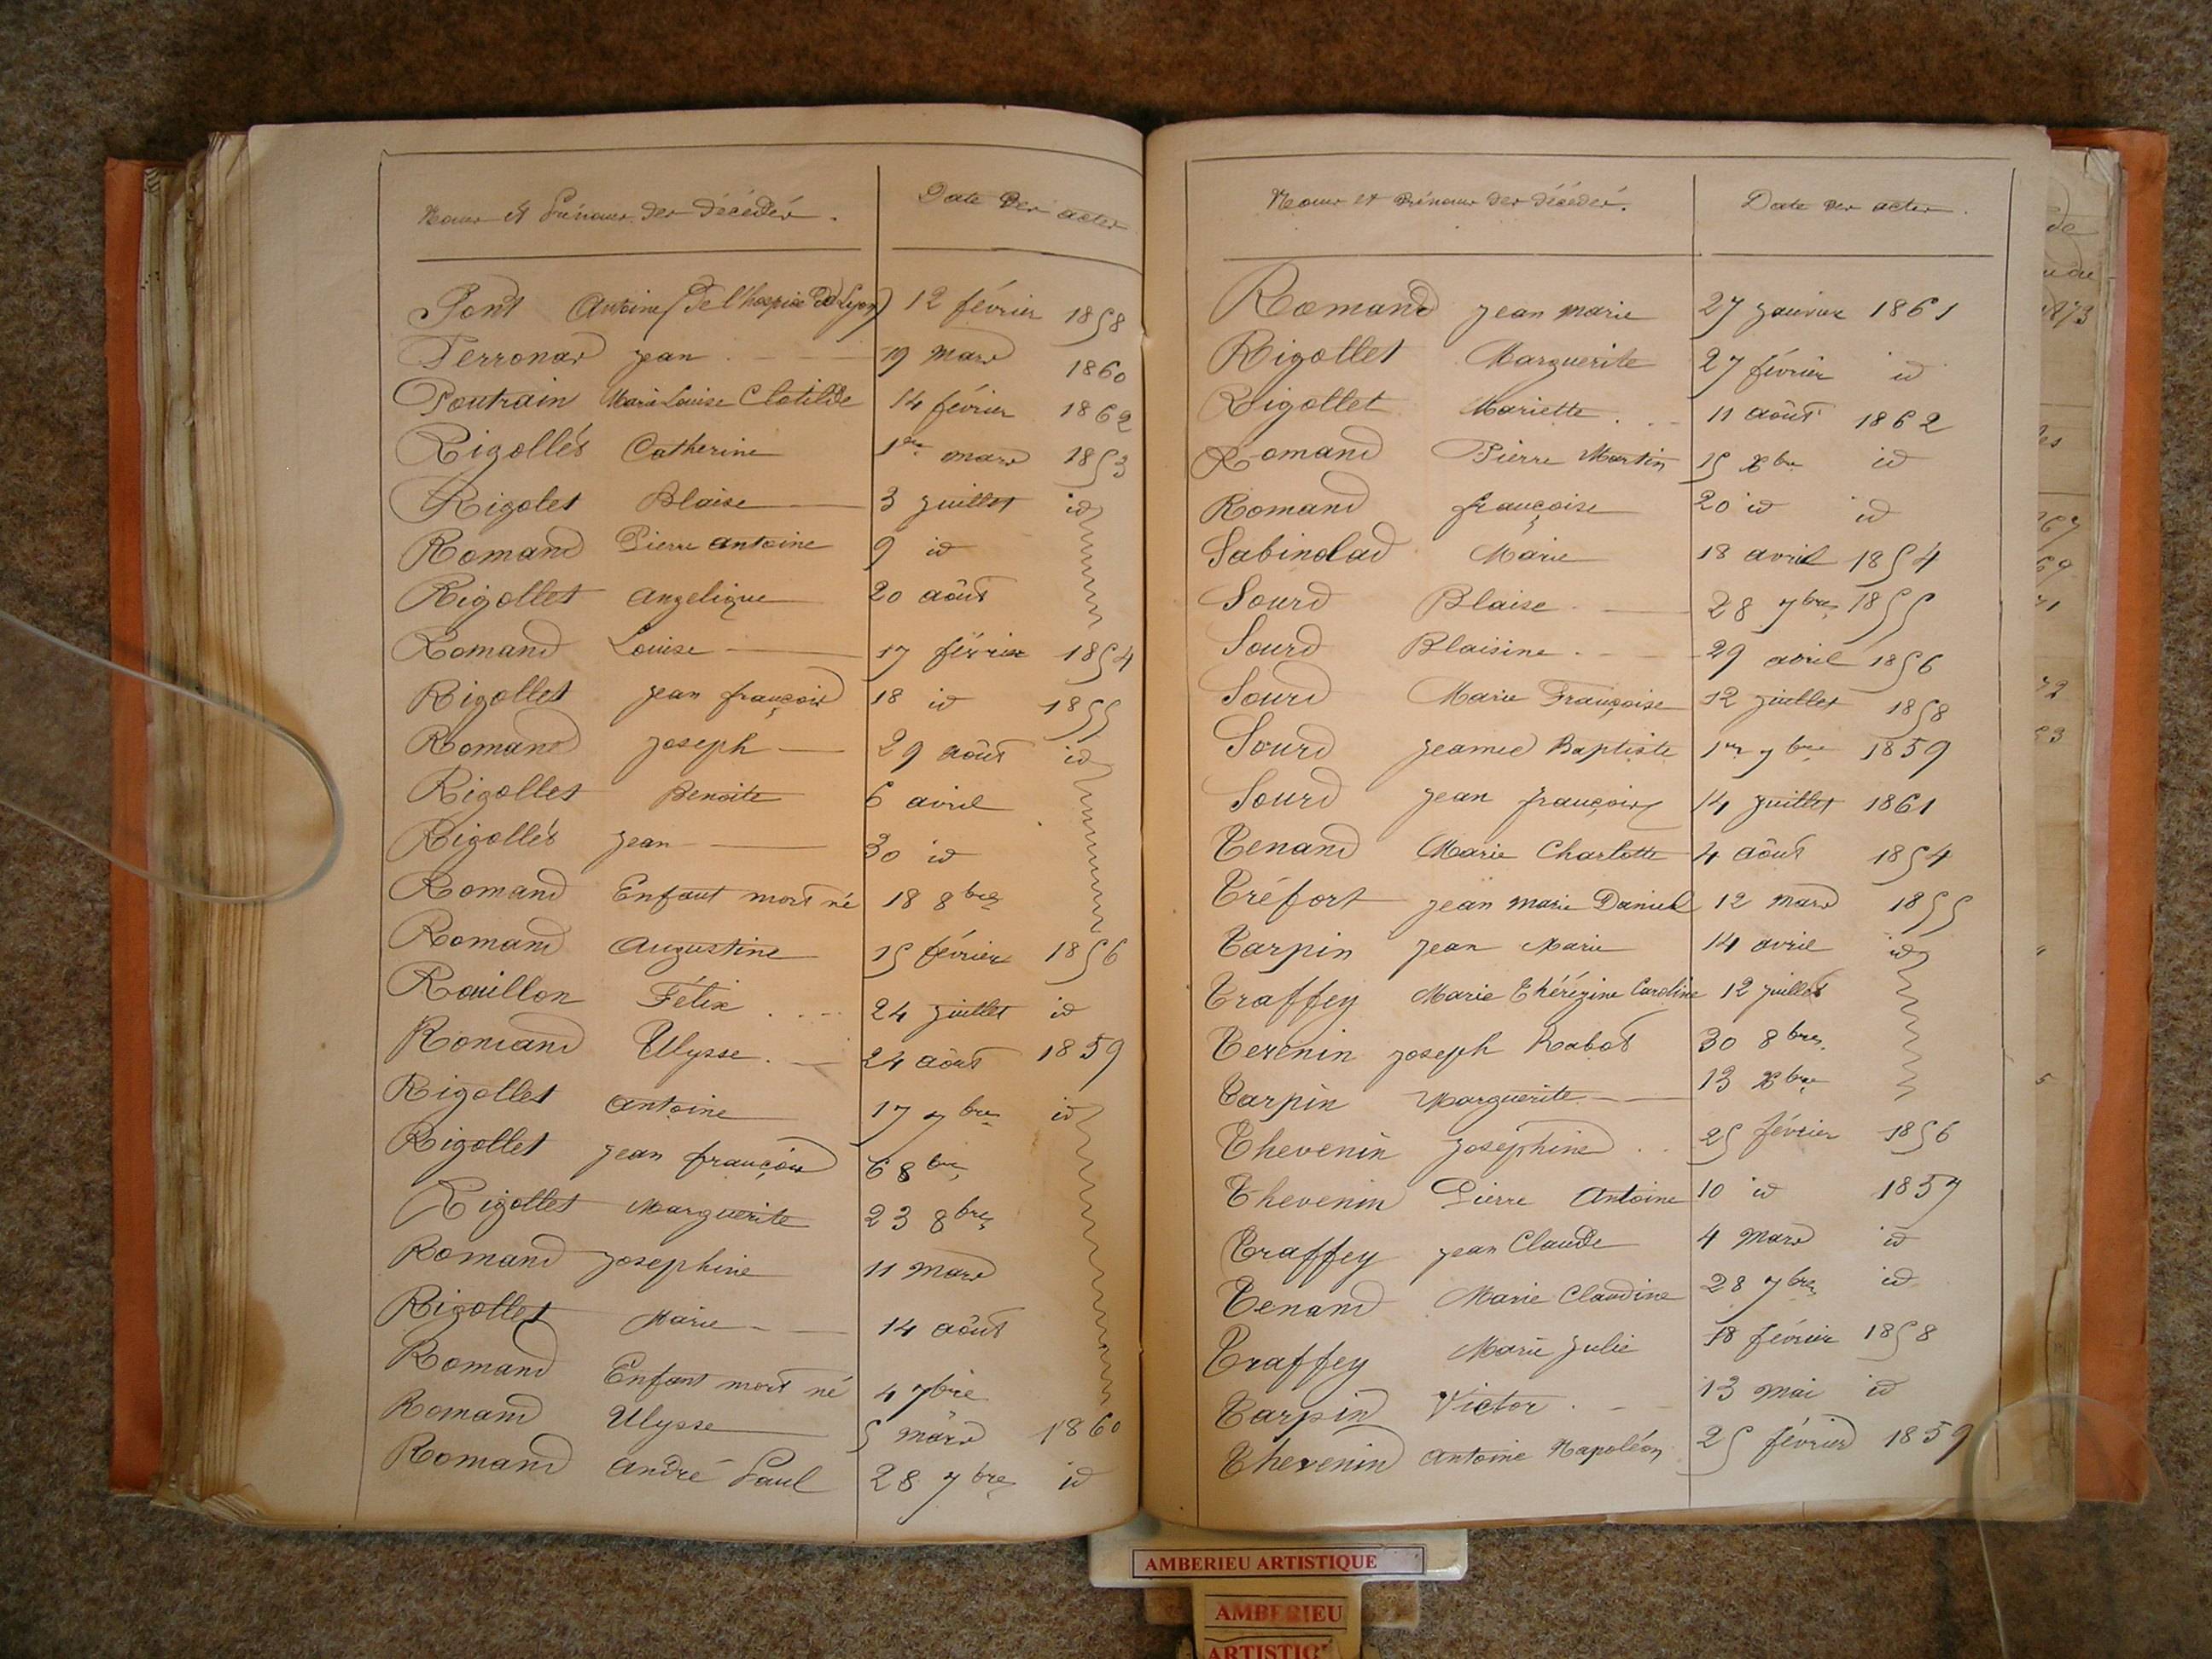 Noms et Prénoms des décédés. Date des actes
Pont Antoine (de l'hospice de Lyon) 12 février 1858
Perronas jean 19 mars 1860
Poutrain Marie Louise Clotilde 14 février 1862
Rigollet Catherine 1er mars 1853
Rigolet Blaise 3 juillet id
Romand Pierre antoine 9 id
Rigollet angelique 20 aôut
Romand Louise 17 février 1854
Rigollet jean françois 18 id 1855
Romand joseph 29 aôut id
Rigollet Benoite 6 avril
Rigollet jean 30 id
Romand Enfant mort né 18 8bre
Romand augustine 15 février 1856
Rouillon Félix 24 juillet id
Romand Ulysse 24 aôut 1859
Rigollet antoine 17 7bre id
Rigollet jean françois 6 8bre
Rigollet Marguerite 23 8bre
Romand josephine 11 mars
Rigollet Marie 14 aôut
Romand Enfant mort né 4 7bre
Romand Ulysse 5 mars 1860
Romand andré Paul 28 7bre id
Noms et Prénoms des décédés. Date des actes.
Romand jean marie 27 janvier 1861
Rigollet Marguerite 27 février id
Rigollet Mariette 11 aôut 1862
Romand Pierre Martin 15 Xbre id
Romand françoise 20 id id
Sabinolad Marie 18 avril 1854
Sourd Blaise 28 7bre 1855
Sourd Blaisine 29 avril 1856
Sourd Marie Françoise 12 juillet 1858
Sourd jeanne Baptiste 1er 7bre 1859
Sourd jean françois 14 juillet 1861
Tenand Marie Charlotte 4 aôut 1854
Tréfort jean marie Daniel 12 mars 1855
Tarpin jean Marie 14 avril id
Traffey Marie Thérézine Caroline 12 juillet
Terenin joseph Rabot 30 8bre
Tarpin Marguerite 13 Xbre
Thevenin joséphine 25 février 1856
Thevenin Pierre Antoine 10 id 1857
Traffey jean Claude 4 mars id
Tenand Marie Claudine 28 7bre id
Traffey Marie julie 18 février 1858
Tarpin Victor 13 mai id
Thevenin antoine Napoléon 25 février 1859
de
1873
AMBERIEU ARTISTIQUE
AMBERIEU
ARTISTIQ